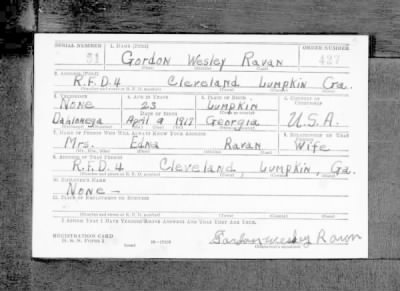 SERIAL NUMBER 1. NAME (Print) ORDER NUMBER
31 Gordon Wesley Ravan 427
(First) (Middle) (Last)
2. ADDRESS (Print)
R.F.D. 4 Cleveland Lumpkin Ga.
3. TELEPHONE 4. AGE IN YEARS 5. PLACE OF BIRTH 6. COUNTRY OF CITIZENSHIP
None 23 Lumpkin
DATE OF BIRTH
Dahlonega April 9 1917 Georgia U.S.A.
7. NAME OF PERSON WHO WILL ALWAYS KNOW YOUR ADDRESS 8. RELATIONSHIP OF THAT PERSON
Mrs. Edna Ravan Wife
(Mr., Mrs., Miss) (First) (Middle) (Last)
9. ADDRESS OF THAT PERSON
R.F.D. 4 Cleveland, Lumpkin, Ga.
10. EMPLOYER'S NAME
None -
11. PLACE OF EMPLOYMENT OR BUSINESS
I AFFIRM THAT I HAVE VERIFIED ABOVE ANSWERS AND THAT THEY ARE TRUE.
REGISTRATION CARD
D. S. S. FORM 1
Gordon Wesley Ravan
(Registrant's signature)